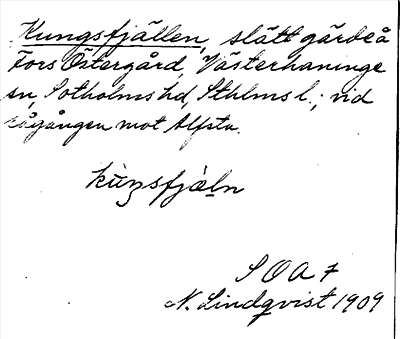 Kungsfjällen, slätt gärde å
Fors Östergård, Västerhaninge
sn, Sotholms hd, Sthlms l.; vid
rågången mot Alfsta.
kùŋsfjæln
S O A 7
N. Lindqvist 1909